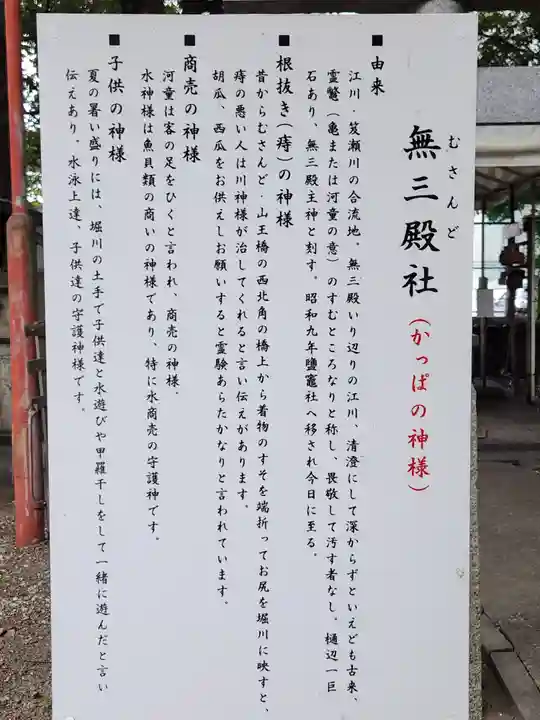 むさんど
無三殿社(かっぱの神様)
■由来
江川・笈瀬川の合流地。無三殿いり辺りの江川、清澄にして深からずといえども古来、
霊鼈(亀または河童の意)のすむところなりと称し、畏敬して汚す者なし。樋辺一巨
石あり、無三殿主神と刻す。昭和九年鹽竈社へ移され今日に至る。
■根抜き(痔)の神様
昔からむさんど・山王橋の西北角の橋上から着物のすそを端折ってお尻を堀川に映すと、
痔の悪い人は川神様が治してくれると言い伝えがあります。
胡瓜、西瓜をお供えしお願いすると霊験あらたかなりと言われています。
■商売の神様
河童は客の足をひくと言われ、商売の神様.
水神様は魚貝類の商いの神様であり、特に水商売の守護神です。
■子供の神様
夏の暑い盛りには、堀川の土手で子供達と水遊びや甲羅干しをして一緒に遊んだと言い
伝えあり。水泳上達、子供達の守護神様です。